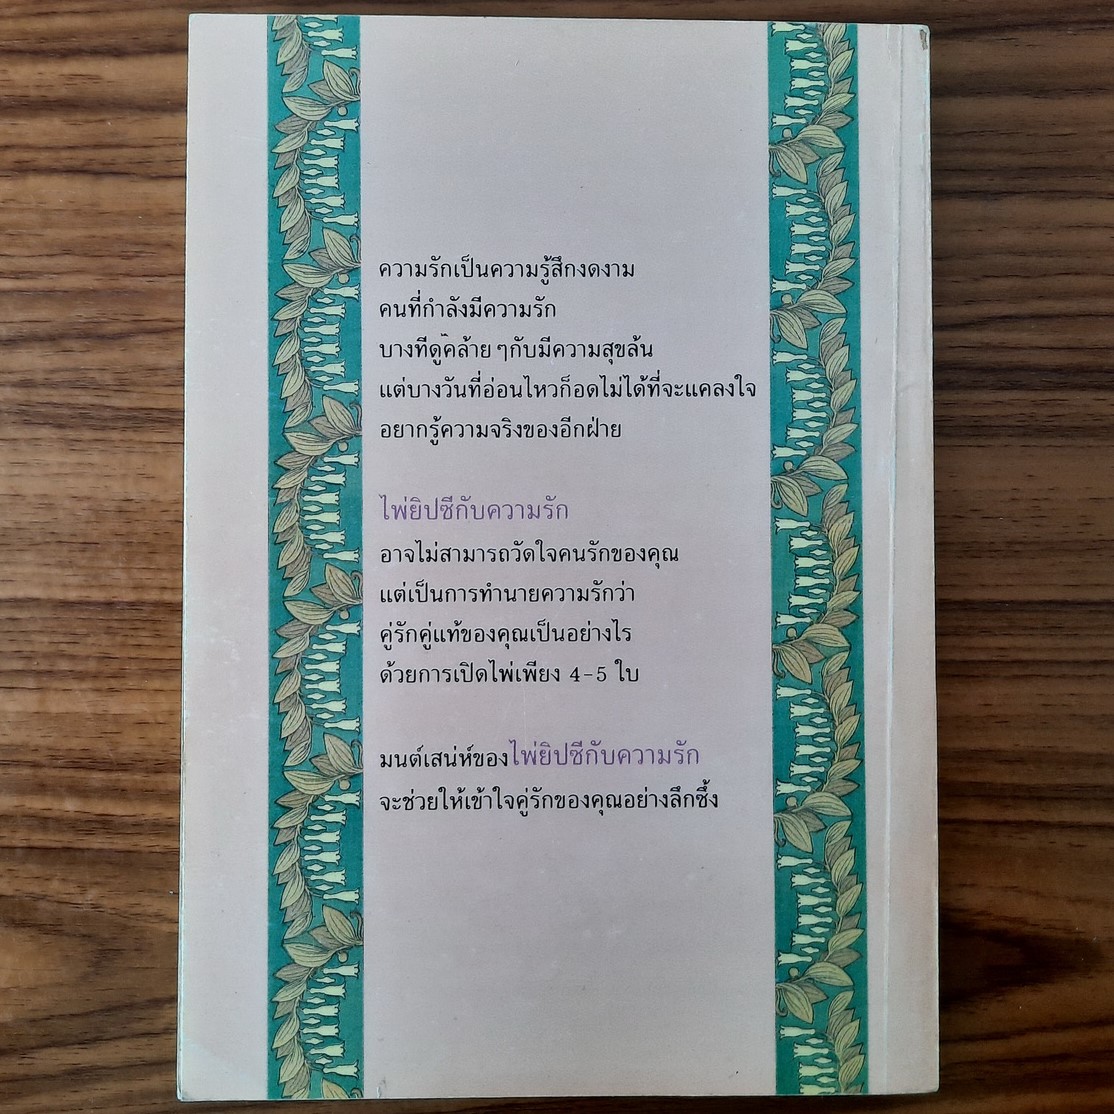 ความรักเป็นความรู้สึกงดงาม
คนที่กำลังมีความรัก
บางทีดูคล้าย ๆกับมีความสุขล้น
แต่บางวันที่อ่อนไหวก็อดไม่ได้ที่จะแคลงใจ
อยากรู้ความจริงของอีกฝ่าย
ไพ่ยิปซีกับความรัก
อาจไม่สามารถวัดใจคนรักของคุณ
แต่เป็นการทำนายความรักว่า
คู่รักคู่แท้ของคุณเป็นอย่างไร
ด้วยการเปิดไพ่เพียง 4-5 ใบ
มนต์เสน่ห์ของไพ่ยิปซีกับความรัก
จะช่วยให้เข้าใจคู่รักของคุณอย่างลึกซึ้ง